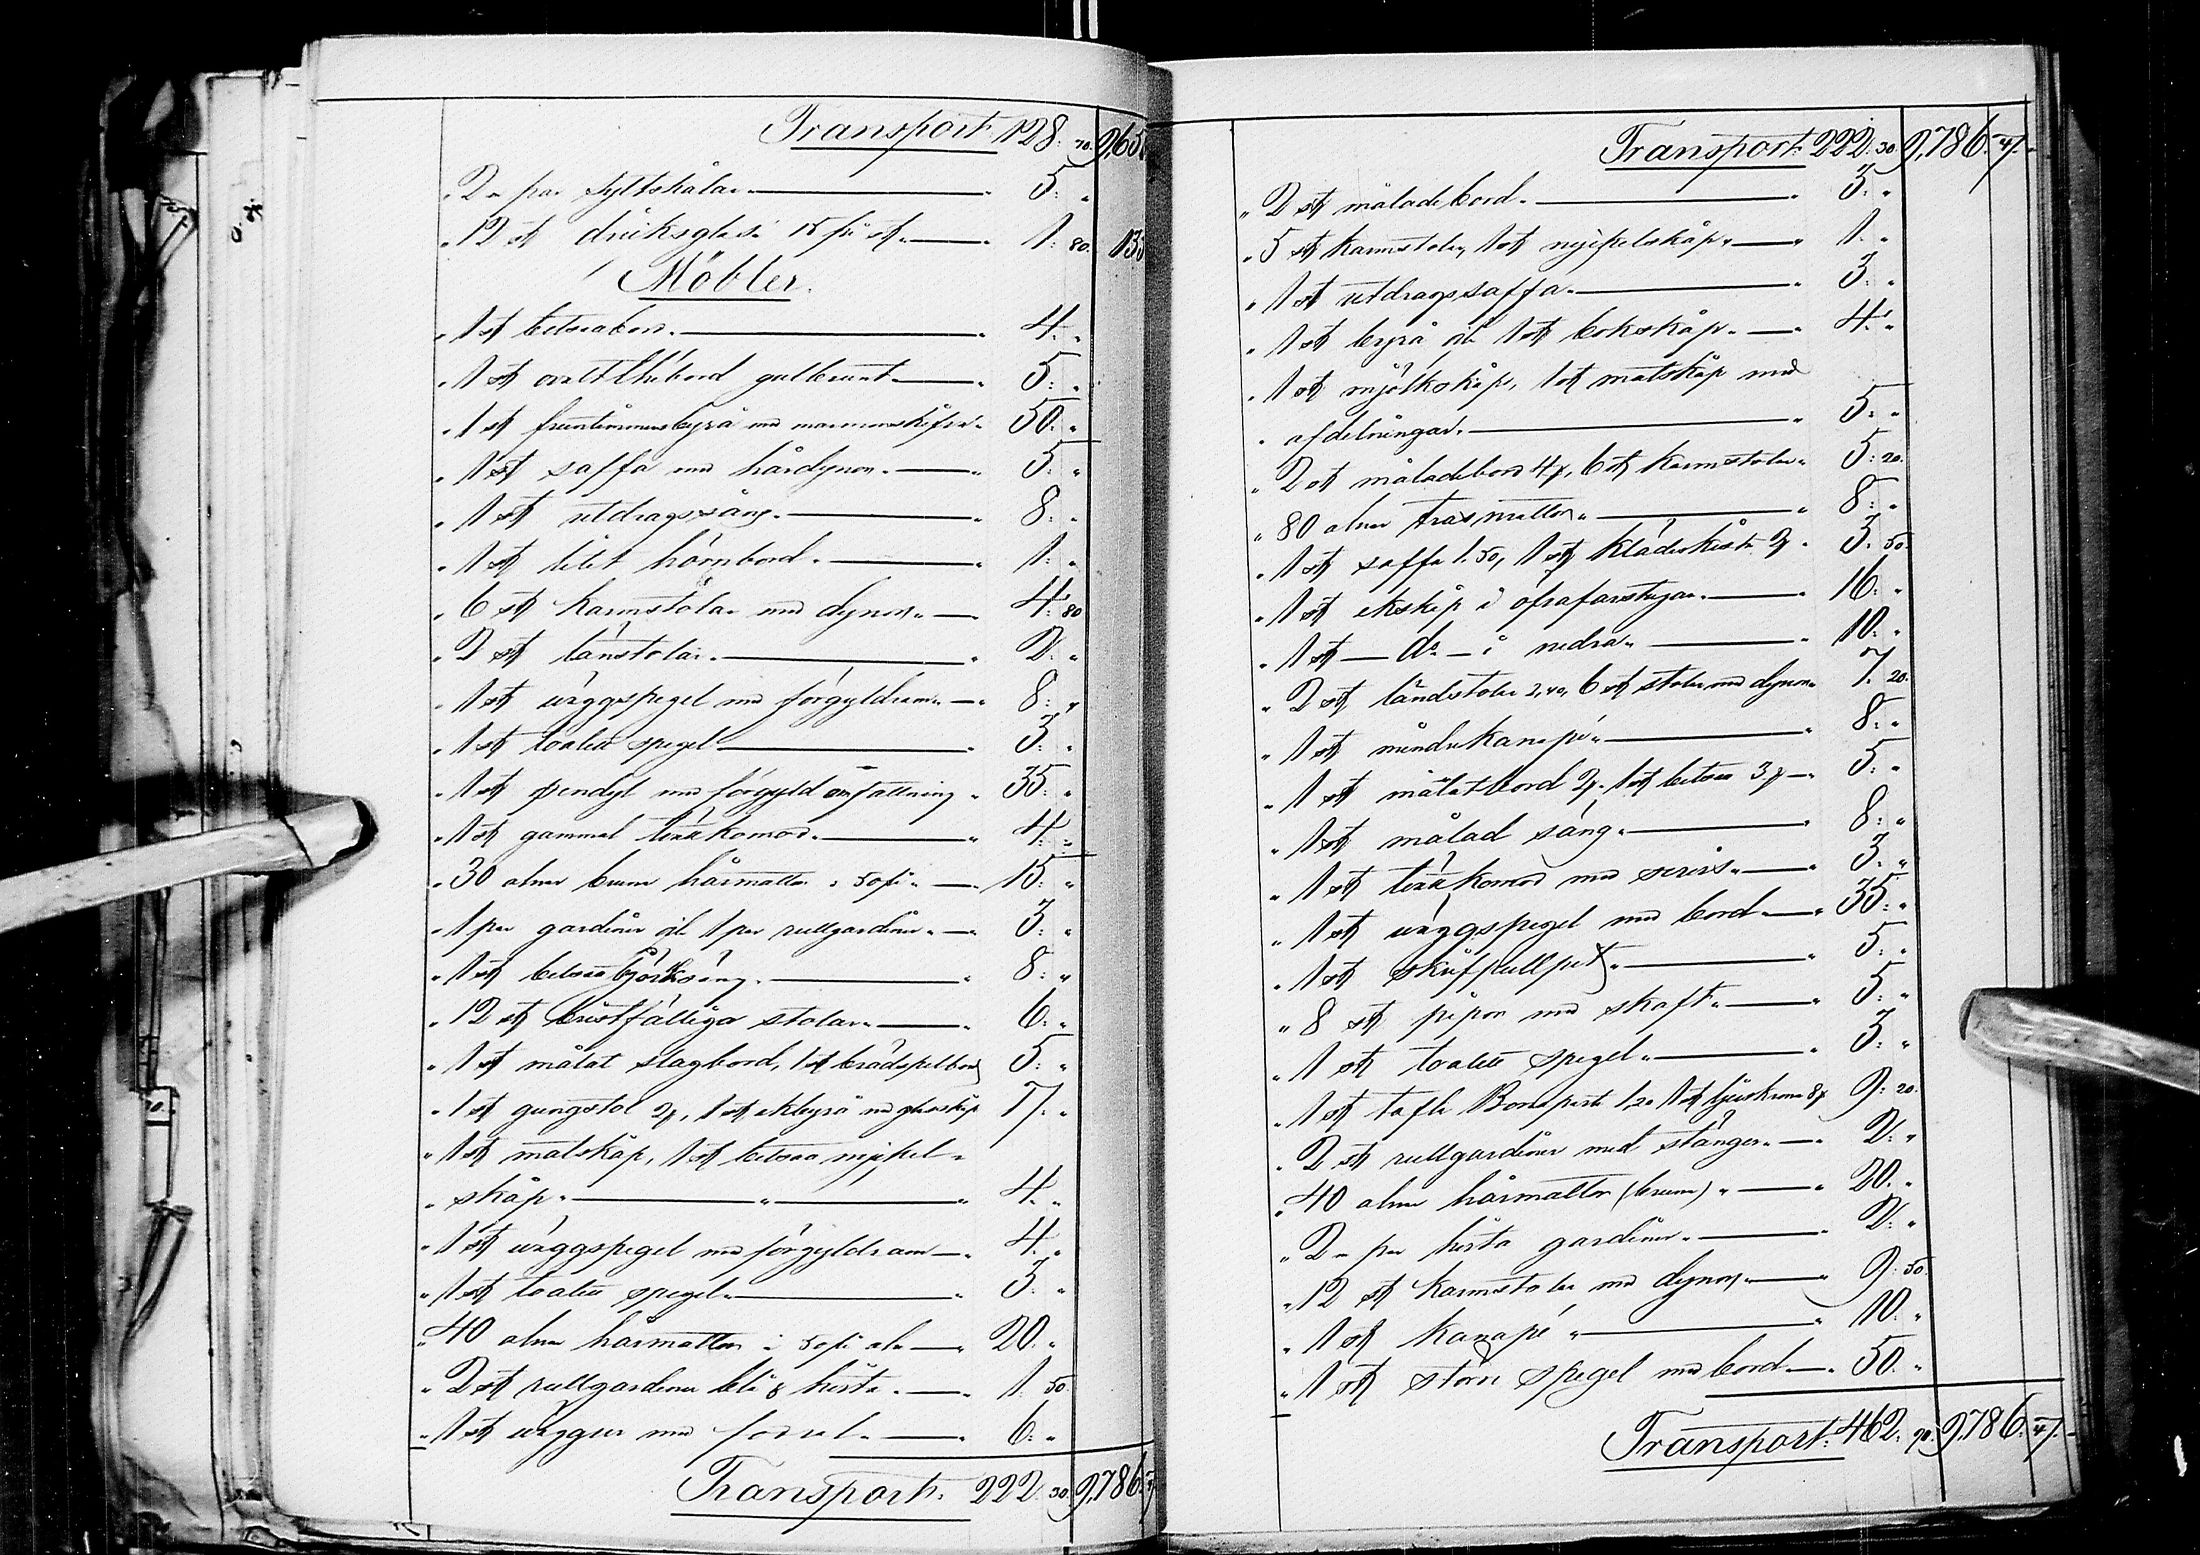 Transport. 128: 70. 9,65
" 2 - par syltskålar. — " 5: "
" 12 st dricksglas: 15 för st. — " 1: 80. 135
Möbler.
" 1 st betsat bord. — " 4: "
" 1 st ovalt bord gulbrunt — " 5: "
" 1 st fruntimmersbyrå med marmorskifva " 50: "
" 1 st saffa med hårdynor. — " 5: "
" 1 st utdragssäng. — " 8: "
" 1 st litet hörnbord. — " 1: "
" 6 st karmstolar med dynor. — " 4: 80
" 2 st länstolar. — " 2: "
" 1 st väggspegel med förgyld ram. — " 8: "
" 1 st toalett spegel — " 3: "
" 1 st pendyl med förgyld omfattning " 35: "
" 1 st gammal komod. — " 4: "
" 30 alnar brun hårmatta: 50 fö — " 15: "
" 1 par gardiner och 1 par rullgardiner. — " 3: "
" 1 st betsad björksäng. — " 8: "
" 12 st bristfälliga stolar. — " 6: "
" 1 st målat slagbord, 1 st brädspelbord 5: "
" 1 st gungstol 2, 1 st ekbyrå med glasskåp 17: "
" 1 st matskåp, 1 st betsat nyckel-
" skåp. — " — " 4: "
" 1 st väggspegel med förgyld ram — " 4: "
" 1 st toalett spegel. — " 3: "
" 40 alnar hårmattor i 50 fö aln — " 20: "
" 2 st rullgardiner blå & hvita. — " 1: 50.
" 1 st väggur med fodral. — " 6: "
Transport. 222: 30. 9,786:
Transport: 222: 30. 9,786: 47.
" 2 st målade bord. — " 3: "
" 5 st karmstolar, 1 st nyckelskåp. — " 1: "
" 1 st utdragssaffa. — " 3: "
" 1 st byrå och 1 st bokskåp. — " 4: "
" 1 st mjölkskåp, 1 st matskåp med
" afdelningar. — " 5: "
" 2 st målade bord 4, 6 st karmstolar " 5: 20.
" 80 alnar trasmattor. — " 8: "
" 1 st saffa 1.50, 1 st klädeskista 2 " 3: 50.
" 1 st ekskåp i öfra farstugan. — " 16: "
" 1 st — do — i nedra. — " 10: "
" 2 st ländstolar 2,40, 6 st stolar med dynor 7: 20.
" 1 st mindre kanapé. — " 8: "
" 1 st målat bord 2. 1 st betsat 3 — " 5: "
" 1 st målad säng. — " 8: "
" 1 st komod med servis. — " 3: "
" 1 st väggspegel med bord. — " 35: "
" 1 st skrifpullpet. — " 5: "
" 8 st pipor med skaft. — " 5: "
" 1 st toalett spegel. — " 3: "
" 1 st tafla Bonaparte 1,20 1 st ljuskrona 8 9: 20.
" 2 st rullgardiner med stänger. — " 2: "
" 40 alnar hårmattor (brun) " — " 20: "
" 2 - par hvita gardiner. — " 2: "
" 12 st karmstolar med dynor. — " 9: 50.
" 1 st kanapé " — " 10: "
" 1 st större spegel med bord — " 50: "
Transport: 462: 90. 9,786: 47.